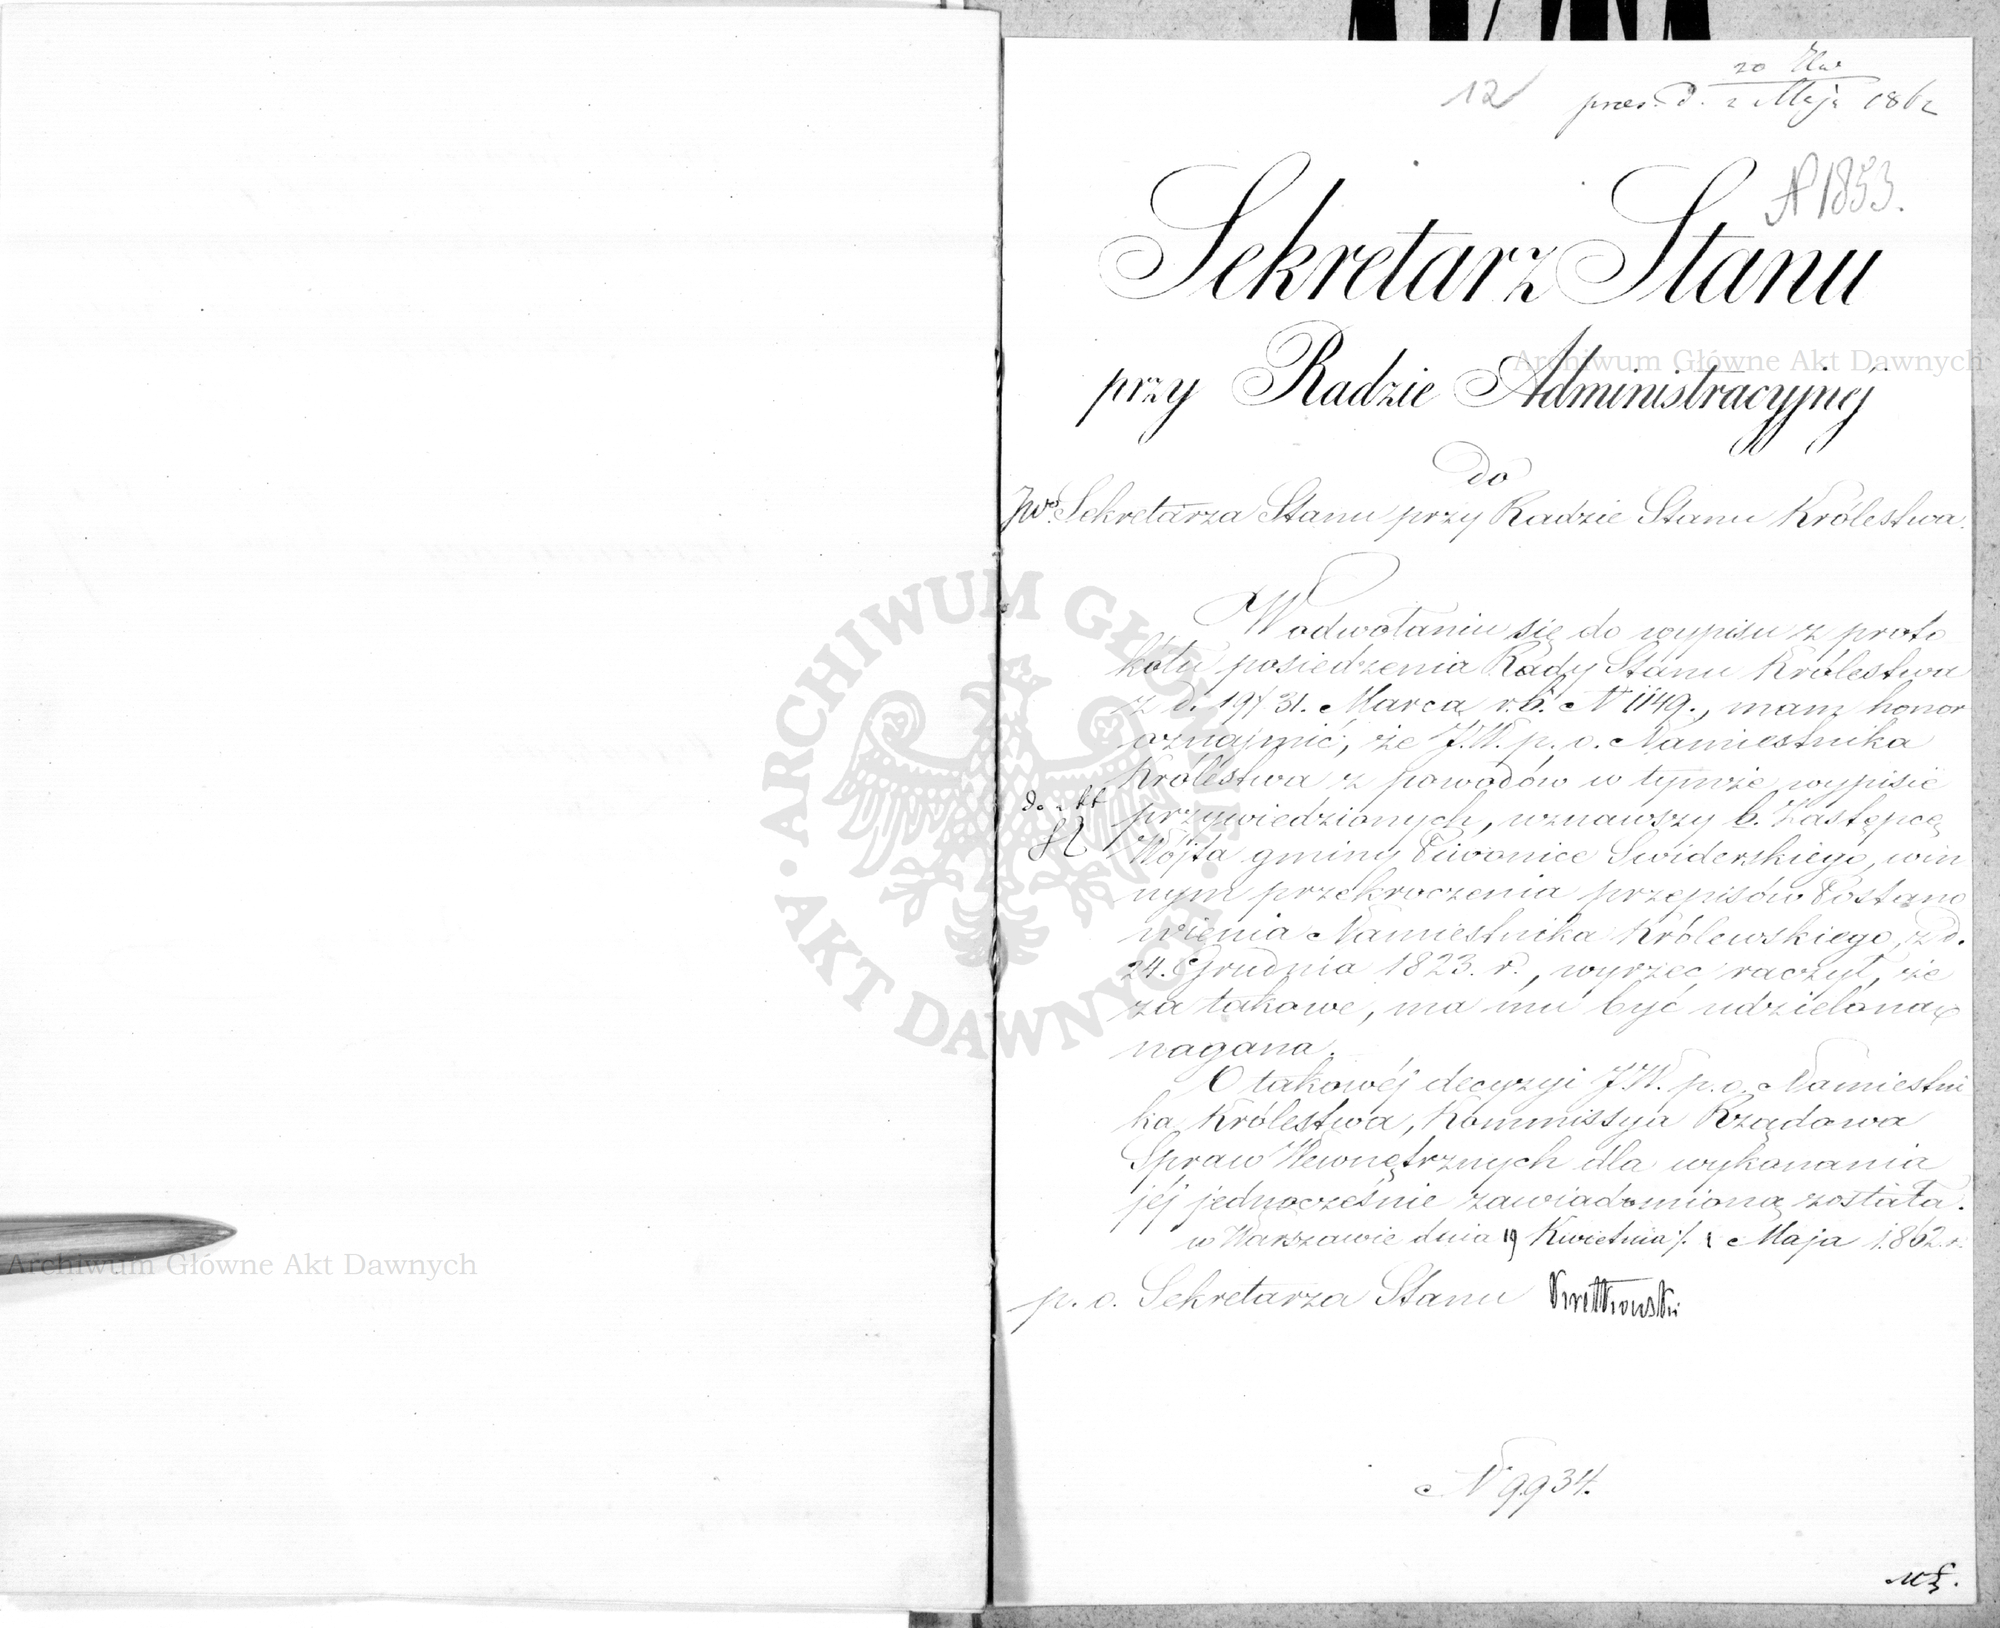 12
20 Kwi
prez. d. 2 Maja 1862
N 1853.
Sekretarz Stanu
przy Radzie Administracyjnéj
do
JWo Sekretarza Stanu przy Radzie Stanu Królestwa.
W odwołaniu się do wypisu z proto
kółu posiedzenia Rady Stanu Królestwa
z d. 19/31. Marca r. b. N 1149., mam honor
oznajmić, że J.W. p. o. Namiestnika
Królestwa z powodów w tymże wypisie
przywiedzionych, uznawszy b. Zastępcę
Wójta gminy Piwonice Swiderskiego, win
nym przekroczenia przepisów Postano
wienia Namiestnika Królewskiego, z d.
24. Grudnia 1823. r., wyrzec raczył, że
za takowe, ma mu być udzieloną
nagana.
O takowéj decyzyi J.W. p. o. Namiestni
ka Królestwa, Kommissya Rządowa
Spraw Wewnętrznych dla wykonania
jéj jednocześnie zawiadomioną została.
w Warszawie dnia 19 Kwietnia/1 Maja 1862 r.
p. o. Sekretarza Stanu
do akt
N 9934.
Archiwum Główne Akt Dawnych
Archiwum Główne Akt Dawnych
ARCHIWUM GŁÓWNE AKT DAWNYCH